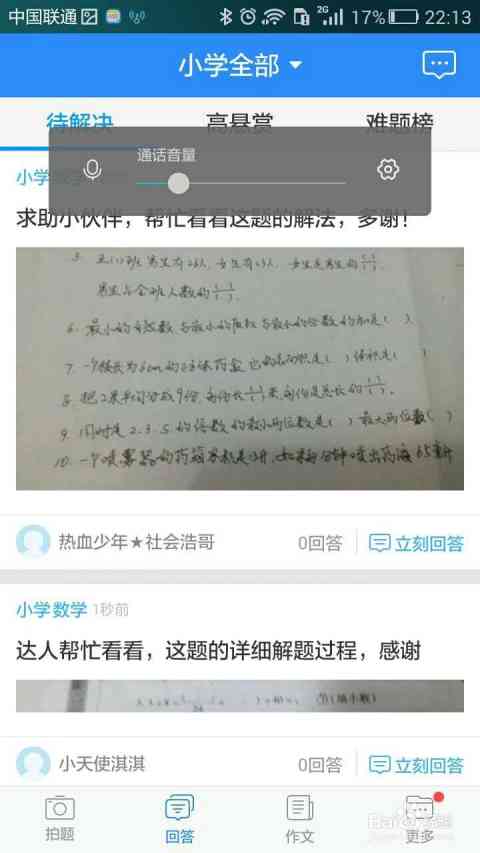 中国联通 2G 17% 22:13
小学全部
待解决 高悬赏 难题榜
通话音量
小学数学
求助小伙伴，帮忙看看这题的解法，多谢！
男生占全班人数的
6. 最小的自然数与最小的质数与最小的合数的和是( )
7. 一个棱长为6cm的正方体药盒,它的表面积是( )体积是( )
8. 把2米平均分成9份,每份长( )米,每份是总长的( )。
9. 同时是2.3.5的倍数的最小两位数是( )最大两位数( )
10. 一个喷雾器的药箱容积是13升,如果每分钟喷出药液65毫升
热血少年★社会浩哥 0回答 立刻回答
小学数学 1秒前
达人帮忙看看，这题的详细解题过程，感谢
小天使淇淇 0回答 立刻回答
拍题 回答 作文 更多